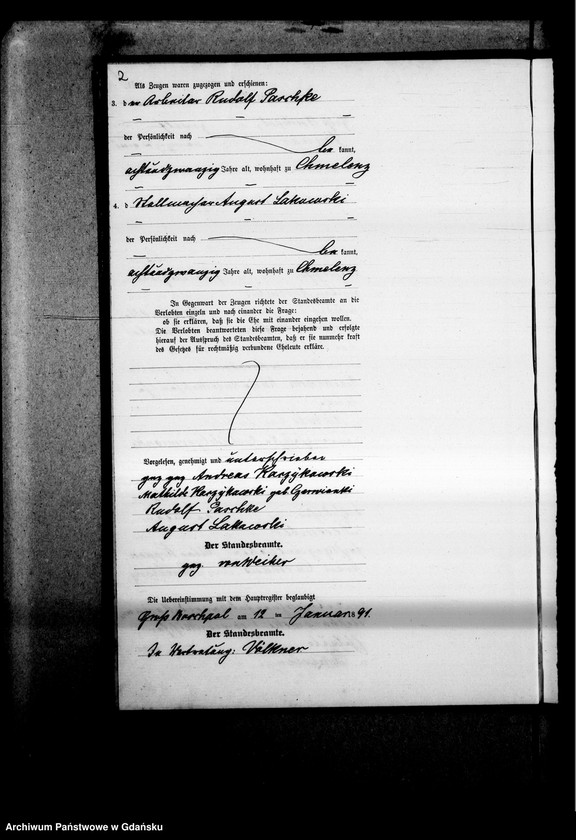 2
Als Zeugen waren zugezogen und erschienen:
3. der Arbeiter Rudolf Paschke
der Persönlichkeit nach
be kannt,
achtundzwanzig Jahre alt, wohnhaft zu Chmelenz
4. d Stellmacher August Lakowski
der Persönlichkeit nach
be kannt,
achtundzwanzig Jahre alt, wohnhaft zu Chmelenz
In Gegenwart der Zeugen richtete der Standesbeamte an die
Verlobten einzeln und nach einander die Frage:
ob sie erklären, daß sie die Ehe mit einander eingehen wollen.
Die Verlobten beantworteten diese Frage bejahend und erfolgte
hierauf der Ausspruch des Standesbeamten, daß er sie nunmehr kraft
des Gesetzes für rechtmäßig verbundene Eheleute erkläre.
Vorgelesen, genehmigt und unterschrieben
gez. Andreas Karzykowski
Mathilde Karzykowski geb
Rudolf Paschke
August Lakowski
Der Standesbeamte.
gez. von Weiher
Die Uebereinstimmung mit dem Hauptregister beglaubigt
Groß Boschpol am 12 ten Januar 1891.
Der Standesbeamte.
In Vertretung: Völkner
Archiwum Państwowe w Gdańsku